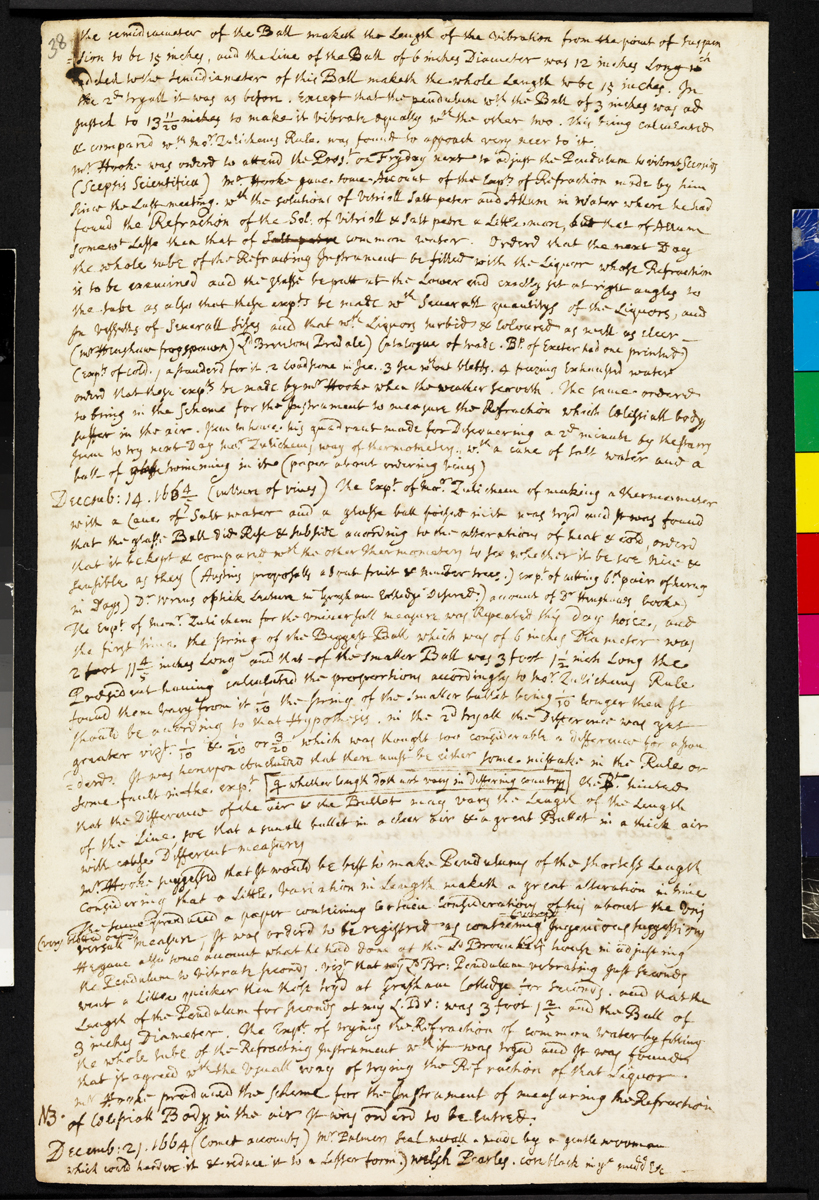 38
the semidiameter of the Ball maketh the Length of the Vibration from the point of Suspen
=sion to be 15 inches, and the Line of the Ball of 6 inches Diameter was 12 inches Long wch
added to the Semidiameter of this Ball maketh the whole Length to be 15 inches. In
the 2d tryall it was as before. Except that the pendulum wth the Ball of 3 inches was ad
justed to 13 11/20 inches to make it vibrate equally wth the other two. This being calculated
& compared wth Mor. Zulichems Rule. was found to approach very neer to it.
Mr. Hooke was orderd to attend the Presdt. on Fryday next to adjust the Pendulum to vibrat Seconds
(Scepsis Scientifica) Mr. Hooke gave some Account of the Expts of Refraction made by him
Since the Last meeting. wth the solutions of Vitrioll Salt peter and Allum in Water where he had
found the Refraction of the Sol: of Vitrioll & Salt petre a Little more, but that of Allum
somewt Lesse then that of common water. Orderd that the next Day
the whole tube of the Refracting Instrument be filled with the Liquor whose Refraction
is to be examined and the glasse be putt at the Lower end exactly set at right angles to
the tube as also that these expts be made wth Severall quantitys of the Liquors, and
In vessells of Severall Sises and that wth Liquors turbid & Coloured as well as cleer
(Mr Henshaw frogspawn) (Ld. Breretons Tredale) (Catalogue of trade. Bp. of Exeter had one printed)
(expts of Cold. 1 a standerd for it. 2 Loadstone in Ice. 3 Ice wthout blebbs. 4 freezing Exhausted water
orderd that these expts be made by Mr Hooke when the weather serveth. The same orderd
to bring in the Scheme for the Instrument to measure the Refraction which Celestiall body
suffer in the air. Item to have his quadrant made for Discovering a 2d minute by the starrs
Item to try next Day Mor. Zulichems way of thermometers, wth a cane of salt water and a
ball of glasse swimming in it (paper about ordering vines)
Decemb: 14. 1664 (culture of vines) The Expt of Mor. Zulichem of making a thermometer
with a Cane of Salt water and a glasse ball poised in it was tryd and It was found
that the glasse Ball did Rise & subside according to the alterations of heat & cold, orderd
that it be kept & compared wth the other Thermometers to see whether it be soe Nice &
sensible as they (Austins proposalls about fruit & timber trees.) expt of cutting
in Days) Dr. Wrens optick Lecture in Gresham Colledge Desired.) account of Dr booke)
The Expt of Monr. Zulichem for the Universall measure was Repeated this Day twice, and
the first time. the string of the Biggest Ball which was of 6 inches Diameter was
2 foot 11 4/5 inches Long and that of the smaller Ball was 3 foot 1 1/2 inch Long the
President having calculated the proportions accordingly to Mor. Zulichems Rule
found them vary from it 1/10 the string of the smaller bullet being 1/10 Longer then It
should be according to that Hypothesis. in the 2d tryall the Difference was yet
greater vizt. 1/10 & 1/20 or 3/20 which was thought too considerable a difference for a stan
=derd. It was hereupon concluded that there must be either some mistake in the Rule or
some fault in the expt. q whether length doth not vary in differing countrys the Pt hinted
that the Difference of the air to the Bullet may vary the Length of the Length
of the Line. soe that a small bullet in a cleer air & a great Bullet in a thick air
will cause Different measurs
Mr. Hooke suggested that It would be best to make Pendulums of the shortest Length
Considering that a Little Variation in Length maketh a great alteration in time
The same produced a paper containing Certain Considerations of his about the Uni
versall measure, It was orderd to be registred as containing Ingenious suggestions
He gave also some account what he had done at the Ld. Brounkers house in adjusting
the Pendulum to vibrate Seconds. vizt that my Ld Br: Pendulum vibrating Just Seconds
went a Little quicker then those tryd at Gresham Colledge for seconds. and that the
Length of the Pendulum for Seconds at my L. Br: was 3 foot 1 2/5 and the Ball of
3 inches Diameter. The Expt. of trying the Refraction of common water by filling
the whole tube of the Refracting Instrument wth it was tryd and It was found
that it agreed wth the Usuall way of trying the Refraction of that Liquor
Mr Hooke produced the Scheme for the Instrument of measuring the Refraction
NB. of Celestiall Bodys in the air It was orderd to be Entred.
Decemb: 21. 1664 (Comet accounts) Mr. Palmers Seal metall & made by a gentle wooman
which could harden it & reduce it to a Lesser form.) Welsh Pearles. cork black in ye midd &c